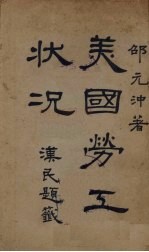 邵元沖著
美國勞工
狀况
漢民題籤